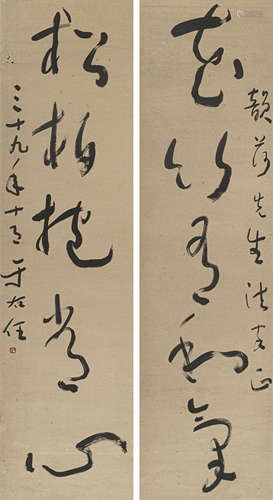 韻荷先生法家正
花竹有和氣
松柏抱心
三十九年十月 于右任